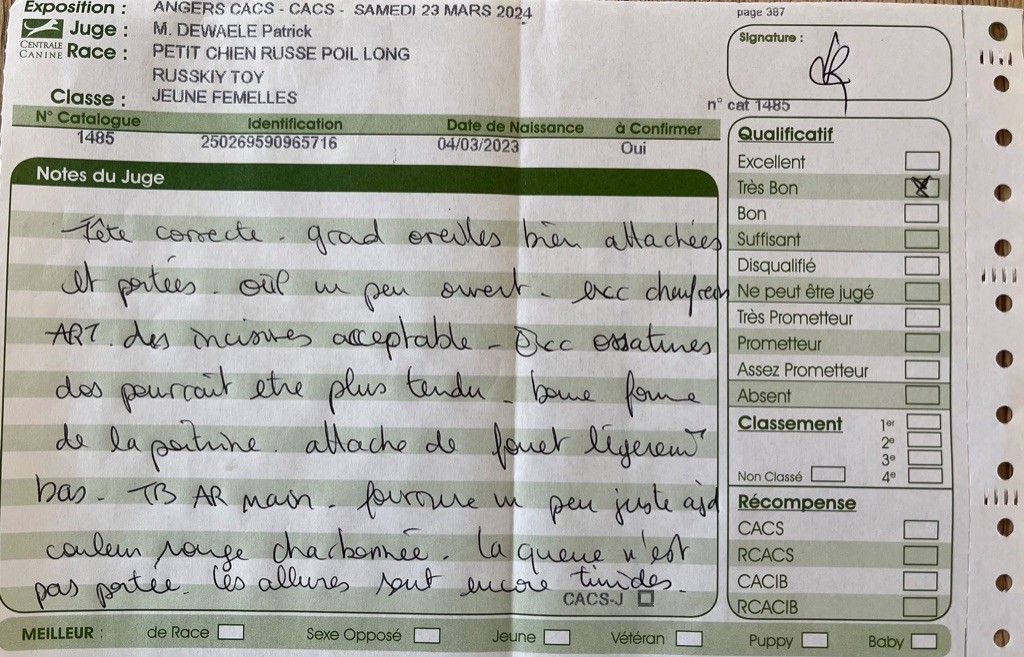 Exposition : ANGERS CACS - CACS - SAMEDI 23 MARS 2024
page 387
CENTRALE CANINE
Juge : M. DEWAELE Patrick
Race : PETIT CHIEN RUSSE POIL LONG
RUSSKIY TOY
Classe : JEUNE FEMELLES
Signature :
n° cat 1485
N° Catalogue Identification Date de Naissance à Confirmer
1485 250269590965716 04/03/2023 Oui
Notes du Juge
Tête correcte. grad oreilles bien attachées
et portées. oeil un peu ouvert. exc chanfrein
ART. des incisives acceptable - Exc ossatures
dos pourrait etre plus tendu. bonne forme
de la poitrine. attache de fouet légèrement
bas. TB AR main. fourrure un peu juste ajd
couleur rouge charbonnée. la queue n'est
pas portée. les allures sont encore timides.
CACS-J
Qualificatif
Excellent
Très Bon X
Bon
Suffisant
Disqualifié
Ne peut être jugé
Très Prometteur
Prometteur
Assez Prometteur
Absent
Classement 1er
2e
3e
Non Classé 4e
Récompense
CACS
RCACS
CACIB
RCACIB
MEILLEUR : de Race Sexe Opposé Jeune Vétéran Puppy Baby